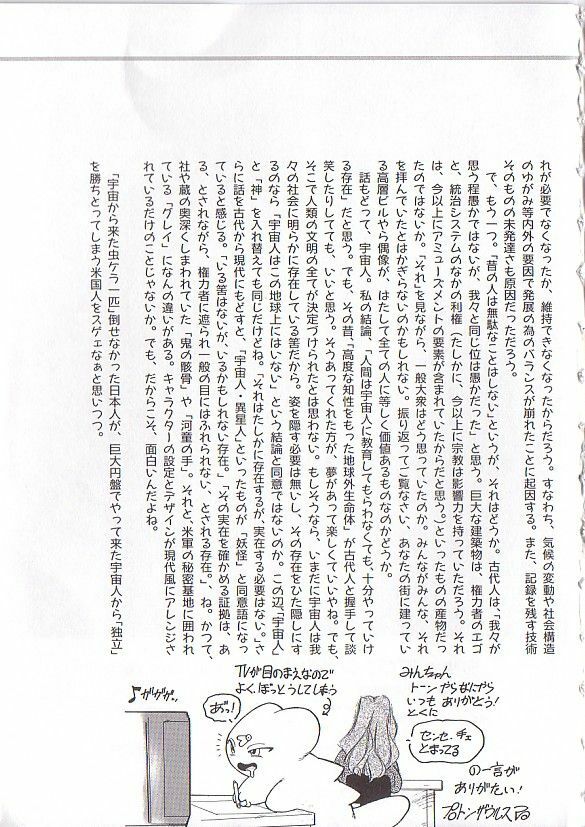 れが必要でなくなったか、維持できなくなったからだろう。すなわち、気候の変動や社会構造
のゆがみ等内外の要因で発展の為のバランスが崩れたことに起因する。また、記録を残す技術
そのものの未発達さも原因だったただろう。
で、もう一つ。「昔の人は無駄なことはしない」というが、それはどうか。古代人は「我々が
思う程愚かではないが、我々と同じ位は愚かだった」と思う。巨大な建築物は、権力者のエゴ
と、統治システムのなかの利権（たしかに、今以上に宗教は影響力を持っていただろう。それ
は、今以上にアミューズメントの要素が含まれていたからだと思う。）といったものの産物だっ
たのではないか。「それ」を見ながら、一般大衆はどう思っていたのか。みんながみんな、それ
を拝んでいたとはかぎらないのかもしれない。振り返ってご覧なさい、あなたの街に建ってい
る高層ビルやら偶像が、はたして全ての人に等しく価値あるものなのかどうか。
話もどって、宇宙人。私の結論、「人間は宇宙人に教育してもらわなくても、十分やっていけ
る存在」だと思う。でも、その昔「高度な知性をもった地球外生命体」が古代人と握手して談
笑したりしてても、いいと思う。そうあってくれた方が、夢があって楽しくていいやね。でも、
そこで人類の文明の全てが決定づけられたとは思わない。もしそうなら、いまだに宇宙人は我
々の社会に明らかに存在している筈だから。姿を隠す必要は無いし、その存在をひた隠しにす
るのなら「宇宙人はこの地球上にはいない」という結論と同意ではないのか。この辺、「宇宙人」
と「神」を入れ替えても同じだけどね。「それはたしかに存在するが、実在する必要はない。」さ
らに話を古代から現代にもどすと、「宇宙人・異星人」といったものが「妖怪」と同意語になっ
ていると感じる。「いる筈はないが、いるかもしれない存在。」「その実在を確かめる証拠は、あ
る、とされながら、権力者に遮られ一般の目にはふれられない、とされる存在」。ね。かつて、
社や蔵の奥深くしまわれていた「鬼の骸骨」や「河童の手」。それと、米軍の秘密基地に囲われ
ている「グレイ」になんの違いがある。キャラクターの設定とデザインが現代風にアレンジさ
れているだけのことじゃないか。でも、だからこそ、面白いんだよね。
「宇宙から来た虫ケラ一匹」倒せなかった日本人が、巨大円盤でやって来た宇宙人から「独立」
を勝ちとってしまう米国人をスゲェなぁと思いつつ。
みんちゃん
トーンやらなにやら
いつもありがとう!
とくに
センセ、チェ
とまってる
の一言が
ありがたい!
プロトンザウルス
TVが目のまえなので
よくぼっとうしてしまう
あっ!
♪ガガガッ